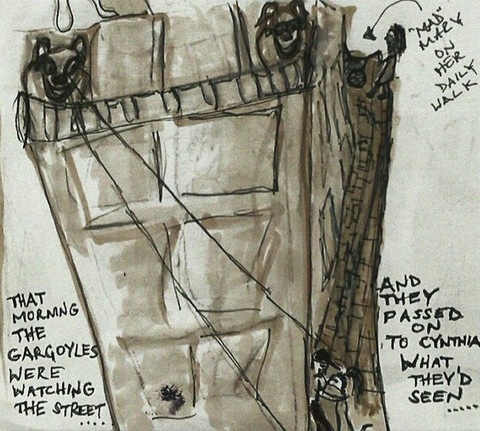 "MAD"
MARY
ON
HER
DAILY
WALK
THAT
MORNING
THE
GARGOYLES
WERE
WATCHING
THE STREET
.....
AND
THEY
PASSED
ON
TO CYNTHIA
WHAT
THEY'D
SEEN
.....